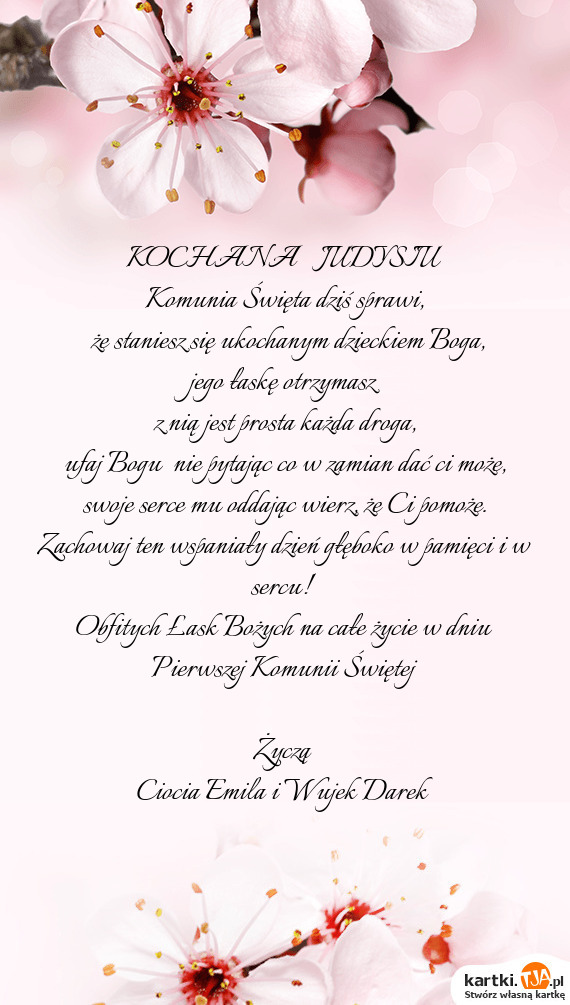 KOCHANA JUDYSIU
Komunia Święta dziś sprawi,
że staniesz się ukochanym dzieckiem Boga,
jego łaskę otrzymasz
z nią jest prosta każda droga,
ufaj Bogu nie pytając co w zamian dać ci może,
swoje serce mu oddając wierz, że Ci pomoże.
Zachowaj ten wspaniały dzień głęboko w pamięci i w
sercu!
Obfitych Łask Bożych na całe życie w dniu
Pierwszej Komunii Świętej
Życzą
Ciocia Emila i Wujek Darek
kartki.TJA.pl
Stwórz własną kartkę